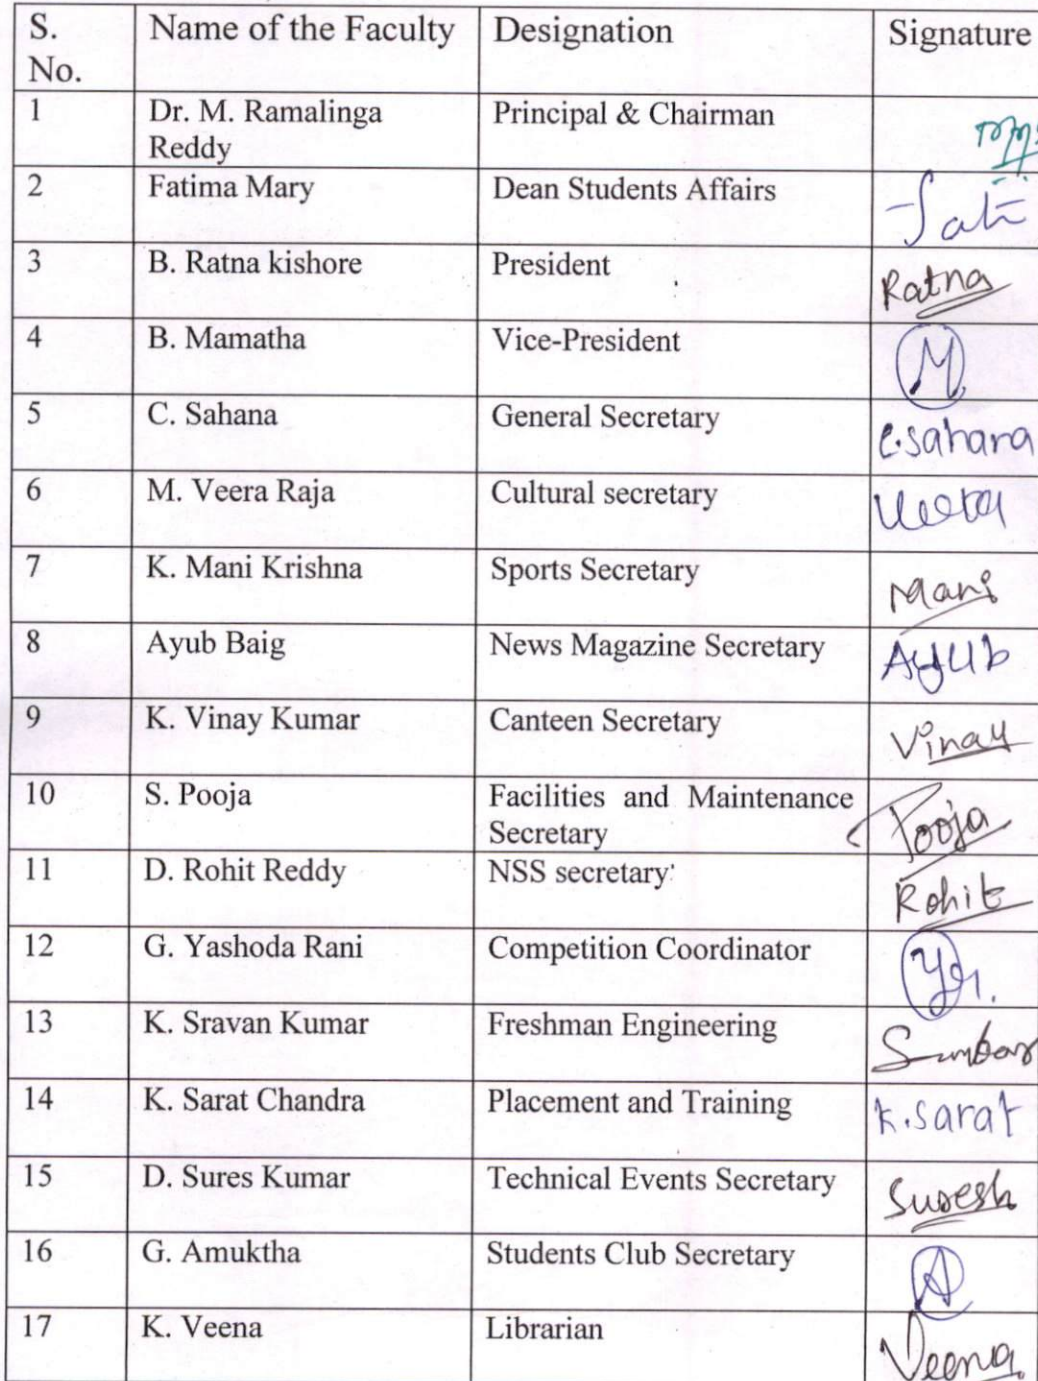 S. Name of the Faculty Designation Signature
No.
1 Dr. M. Ramalinga Principal & Chairman
Reddy
2 Fatima Mary Dean Students Affairs
3 B. Ratna kishore President Ratna
4 B. Mamatha Vice-President M
5 C. Sahana General Secretary C.sahana
6 M. Veera Raja Cultural secretary Veera
7 K. Mani Krishna Sports Secretary Mani
8 Ayub Baig News Magazine Secretary Ayub
9 K. Vinay Kumar Canteen Secretary Vinay
10 S. Pooja Facilities and Maintenance Pooja
Secretary
11 D. Rohit Reddy NSS secretary Rohit
12 G. Yashoda Rani Competition Coordinator
13 K. Sravan Kumar Freshman Engineering
14 K. Sarat Chandra Placement and Training K.Sarat
15 D. Sures Kumar Technical Events Secretary Suresh
16 G. Amuktha Students Club Secretary A
17 K. Veena Librarian Veena